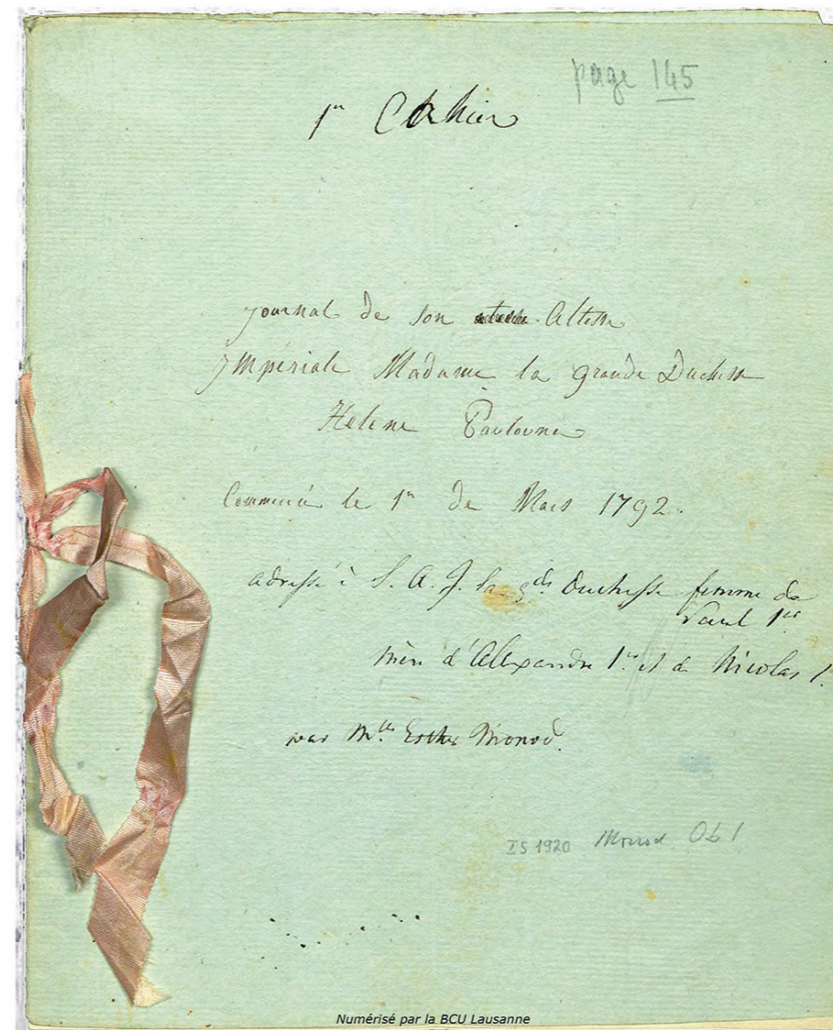 page 145
1er Cahier
Journal de son Altesse
Impériale Madame la grande Duchesse
Helene Paulovna
Commencé le 1er de Mars 1792.
adressé à S. A. J. la gde Duchesse femme de
Paul 1er
mère d'Alexandre 1er et de Nicolas 1.
par Mlle Esther Monod.
IS 1920 Monod Ob 1
Numérisé par la BCU Lausanne